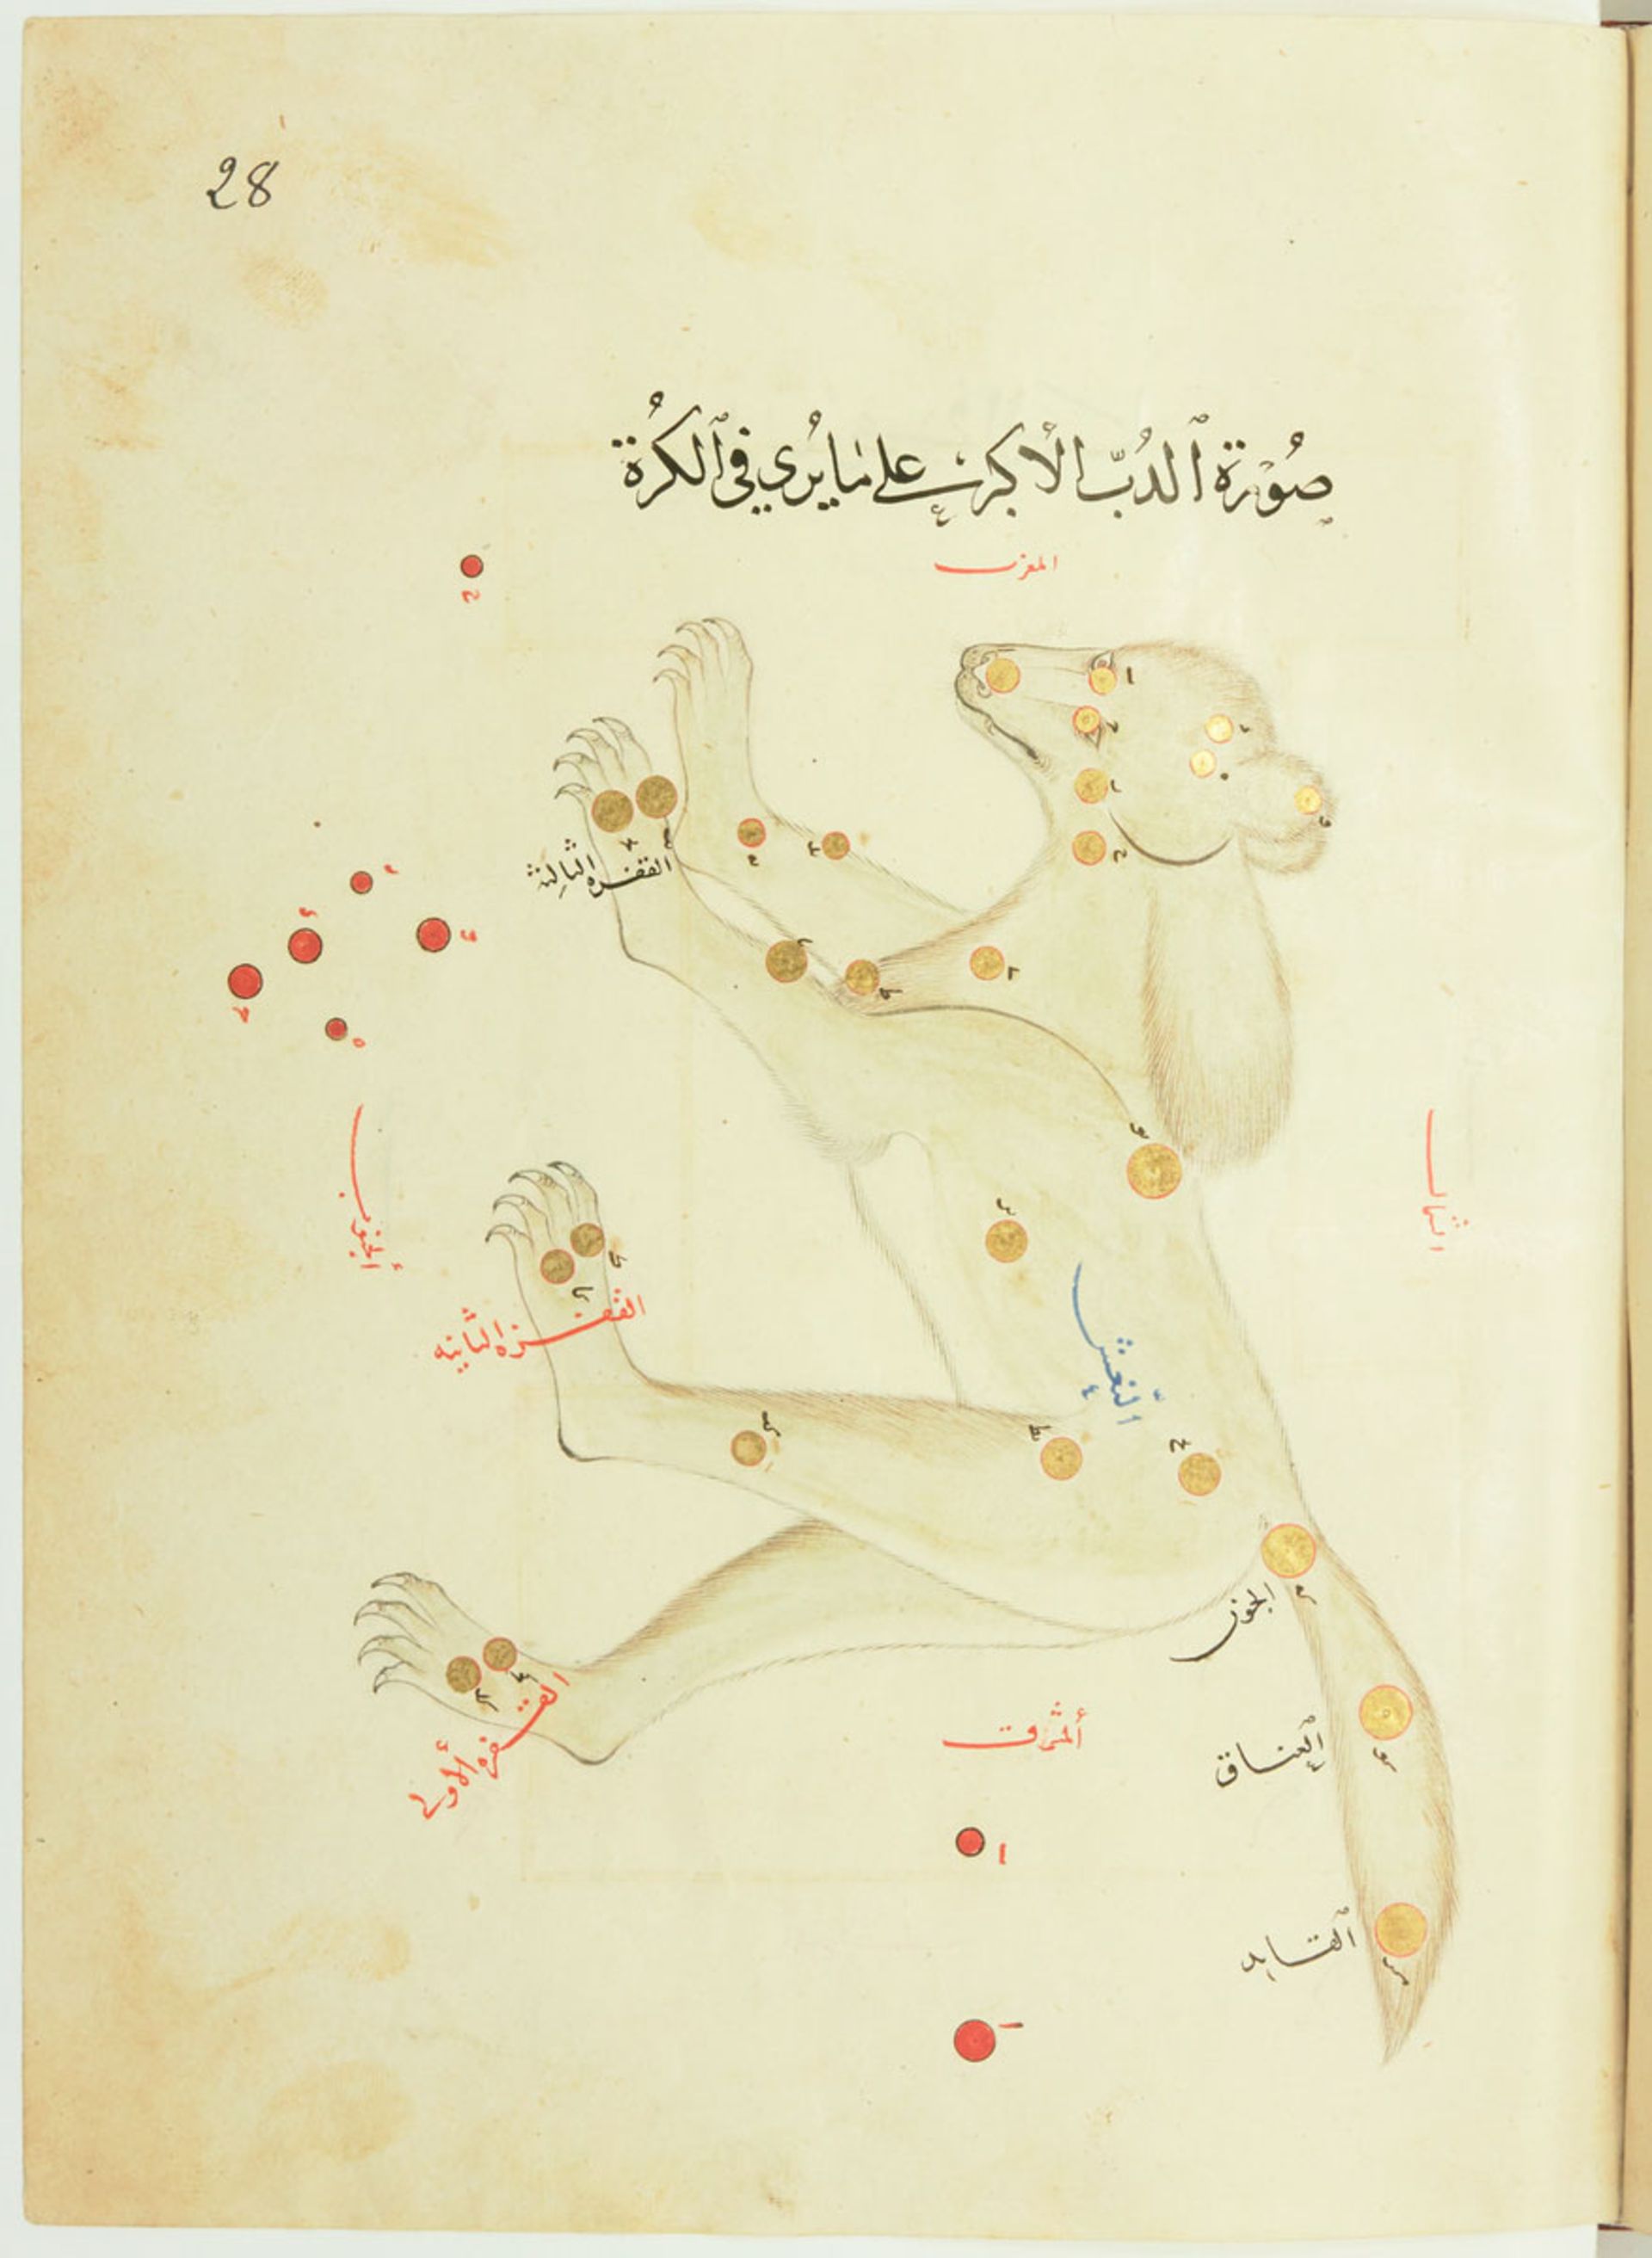 28
صُوْرَة ٱلدُبّ الأكبر علىٰ مٰا يُرى فى ٱلكُرة
المغرب
القفزه الثالثة
الجنوب
الشمال
القفزه الثانيه
ألنعش
الجون
القفزه الأولى
ألمشرق
العناق
القايد